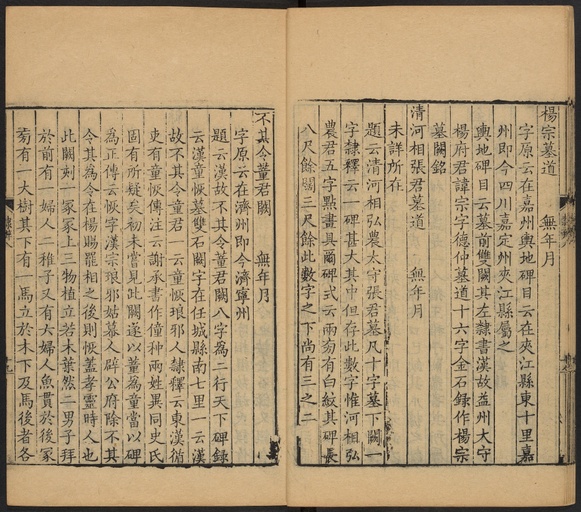 楊宗墓道 無年月
字原云在嘉州輿地碑目云在夾江縣東十里嘉
州即今四川嘉定州夾江縣屬之
輿地碑目云墓前雙闕其左隸書漢故益州太守
楊府君諱宗字德仲墓道十六字金石錄作楊宗
墓闕銘
清河相張君墓道 無年月
未詳所在
題云清河相弘農太守張君墓凡十字墓下闕一
字隸釋云一碑甚大其中但存此數字惟河相弘
農君五字點畫具爾碑式云兩旁有白紋其碑長
八尺餘闊三尺餘此數字之下尚有三之二
不其令董君闕 無年月
字原云在濟州即今濟寧州
題云漢故不其令董君闕八字為二行天下碑錄
云漢童恢墓雙石闕字在任城縣南七里一云漢
故不其令童君一云童恢琅邪人隸釋云東漢循
吏有童恢傳注云謝承書作僮种兩姓異同史氏
固有所疑矣初未嘗見此闕遂以董為童當以碑
為正傳云恢字漢宗琅邪姑幕人辟公府除不其
令其為令在楊賜罷相之後則恢蓋孝靈時人也
此闕刻一冢冢上三物植立若木葉然二男子拜
於前有一婦人二稚子又有六婦人魚貫於後冢
旁有一大樹其下有一馬立於木下及馬後者各